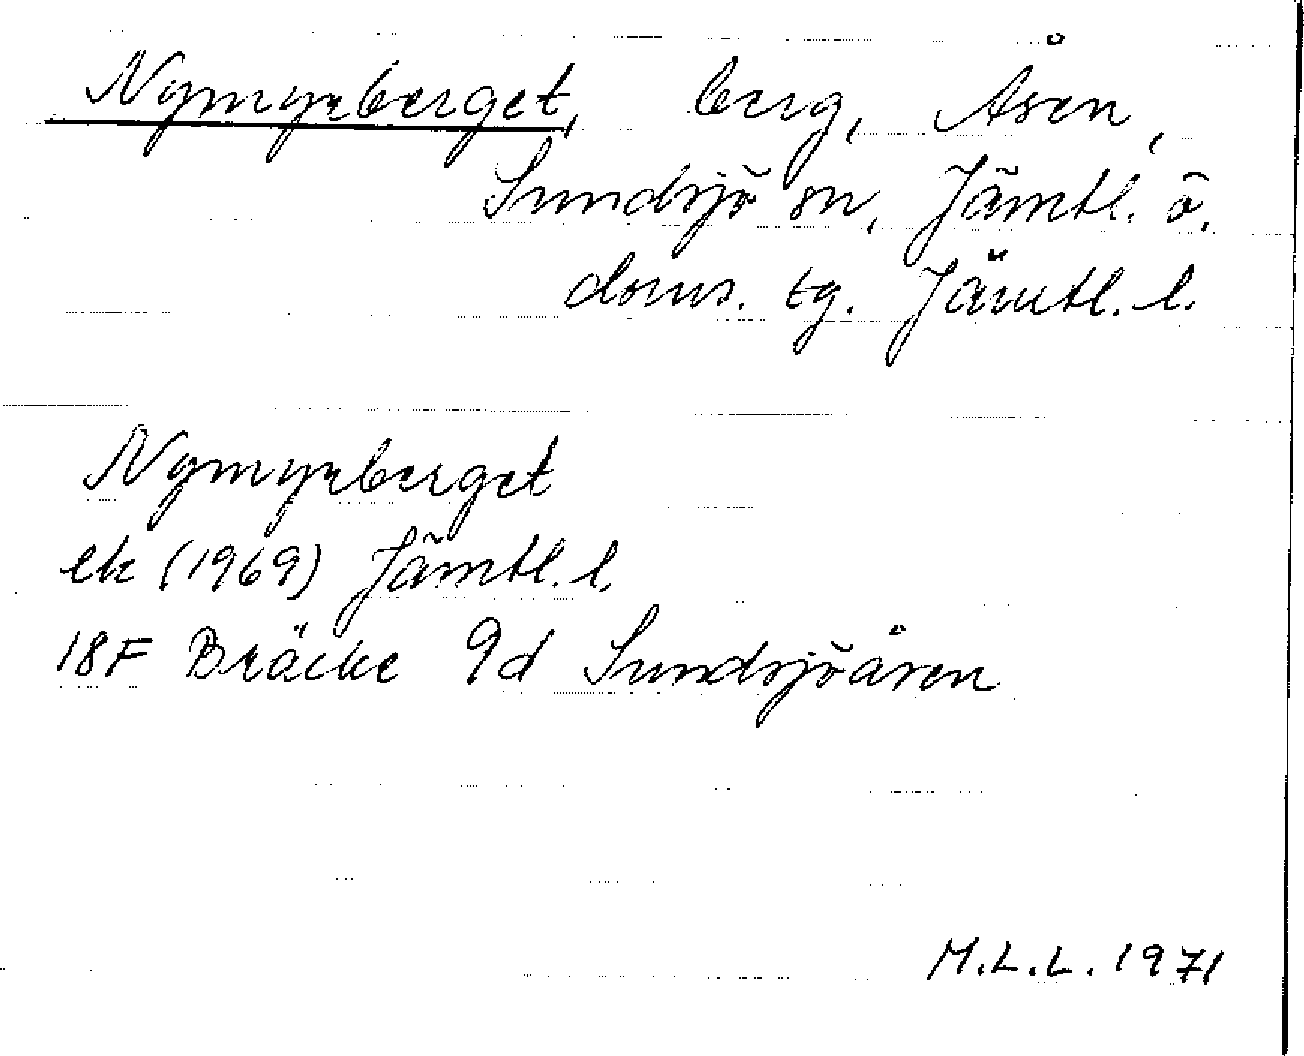 Nymyrberget, berg, Åsen,
Sundsjö sn, Jämtl. ö.
doms. tg. Jämtl. l.
Nymyrberget
ek (1969) Jämtl. l.
18F Bräcke 9d Sundsjöåsen
M.L.L. 1971